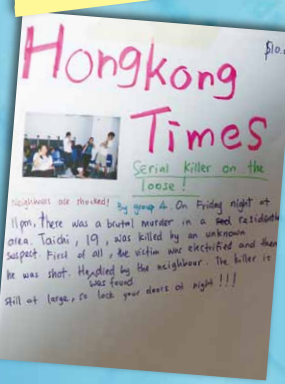 $10.
Hongkong
Times
Serial killer on the
loose!
Neighbours are shocked! By group 4. On Friday night at
11pm, there was a brutal murder in a residential
area. Taichi, 19, was killed by an unknown
suspect. First of all, the victim was electrified and then
he was shot. He died by the neighbour. The killer is
was found
still at large, so lock your doors at night!!!